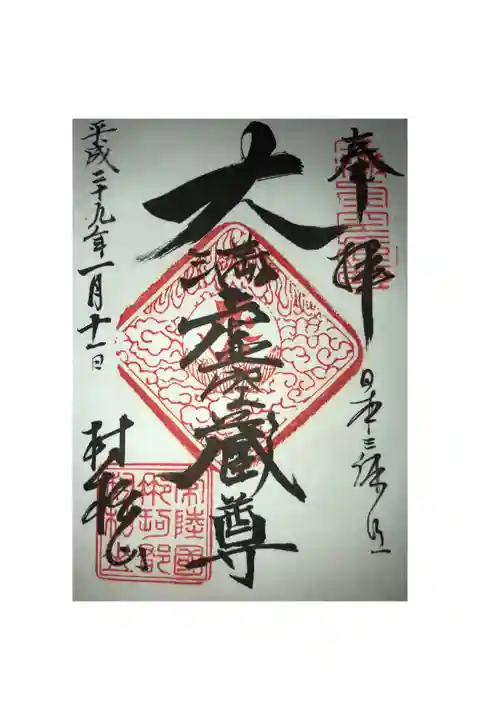 奉拝
日本三体
大満虚空蔵尊
村松山
常陸國
那珂郡
村松山
平成二十九年一月十一日